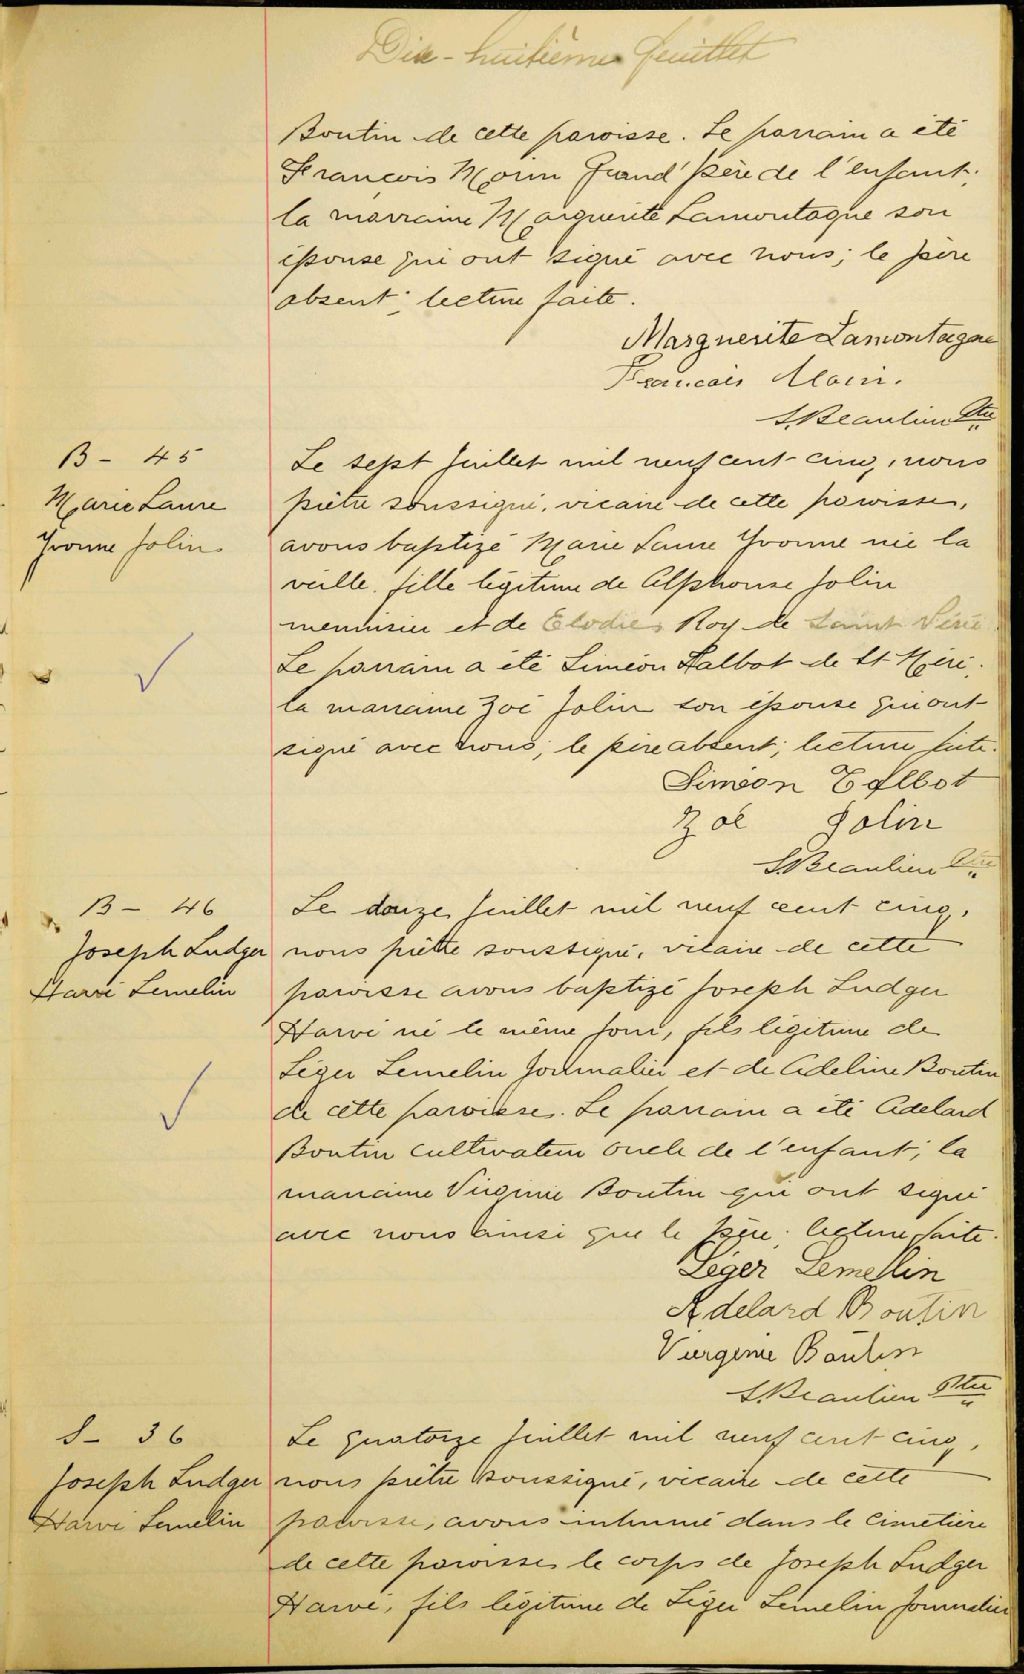 Dix-huitième feuillet
Boutin de cette paroisse. Le parrain a été
François Morin Grand'père de l'enfant;
la marraine Marguerite Lamontagne son
épouse qui ont signé avec nous; le père
absent; lecture faite.
Marguerite Lamontagne
Francois Morin.
S. Beaulieu Ptre
B - 45
Marie Laure
Yvonne Jolin
Le sept Juillet mil neuf cent cinq, nous
prêtre soussigné, vicaire de cette paroisse,
avons baptizé Marie Laure Yvonne née la
veille, fille légitime de Alphonse Jolin
menuisier et de Elodie Roy de Saint Néré
Le parrain a été Siméon Talbot de St Néré;
la marraine Zoé Jolin son épouse qui ont
signé avec nous; le père absent; lecture faite.
Siméon Talbot
Zoé Jolin
S. Beaulieu Ptre
B - 46
Joseph Ludger
Harvé Lemelin
Le douze Juillet mil neuf cent cinq,
nous prêtre soussigné, vicaire de cette
paroisse avons baptizé Joseph Ludger
Harvé né le même jour, fils légitime de
Léger Lemelin Journalier et de Adeline Boutin
de cette paroisse. Le parrain a été Adelard
Boutin cultivateur oncle de l'enfant; la
marraine Virginie Boutin qui ont signé
avec nous ainsi que le père; lecture faite.
Léger Lemellin
Adelard Boutin
Viergenie Boutin
S. Beaulieu Ptre
S - 36
Joseph Ludger
Harvé Lemelin
Le quatorze Juillet mil neuf cent cinq,
nous prêtre soussigné, vicaire de cette
paroisse, avons inhumé dans le cimetière
de cette paroisse le corps de Joseph Ludger
Harvé, fils légitime de Léger Lemelin Journalier